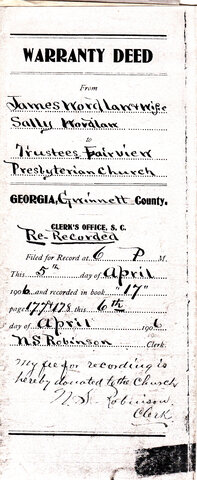 WARRANTY DEED
From
James Wordlaw & wife
Sally Wordlaw
to
Trustees Fairview
Presbyterian Church
GEORGIA, Gwinnett County.
CLERK'S OFFICE, S. C.
Re-Recorded
Filed for Record at 6 P M.
This 5th day of April
1906 and recorded in book "17"
page 177 & 178 this 6th
day of April 1906
N.S. Robinson Clerk.
My fee for recording is
hereby donated to the Church
N.S. Robinson,
Clerk